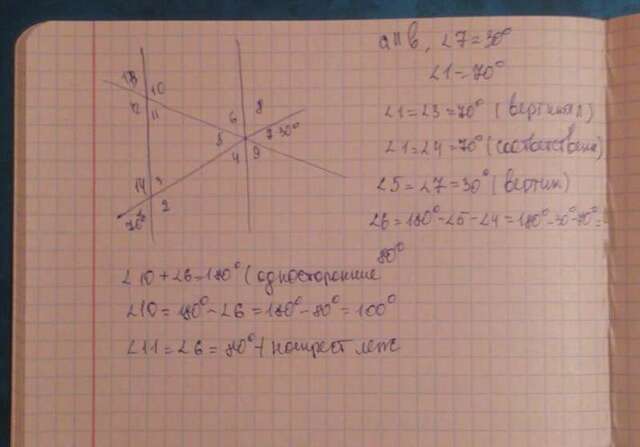 a || b, ∠7 = 30°
∠1 = 70°
∠1 = ∠3 = 70° (вертикал)
∠1 = ∠4 = 70° (соответствен)
∠5 = ∠7 = 30° (вертик)
∠6 = 180° - ∠5 - ∠4 = 180° - 30° - 70° =
80°
13 10
12 11
6 8
5 7-30°
4 9
14 3
1 2
70°
∠10 + ∠6 = 180° (односторонние
∠10 = 180° - ∠6 = 180° - 80° = 100°
∠11 = ∠6 = 80° (накрест леж